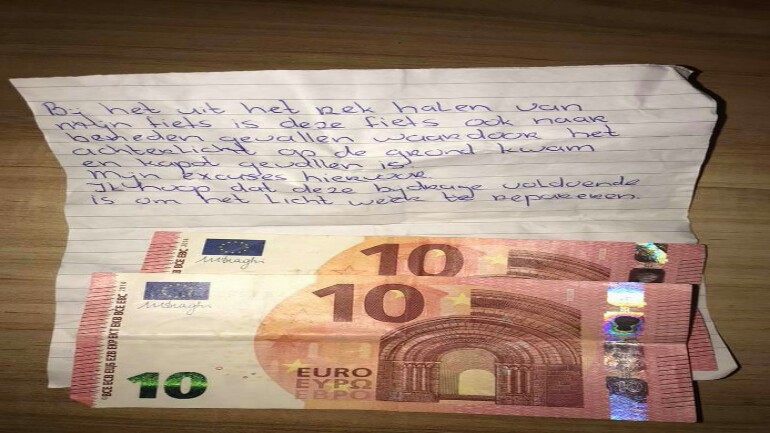 Bij het uit het rek halen van
mijn fiets is deze fiets ook naar
beneden gevallen waardoor het
achterlicht op de grond kwam
en kapot gevallen is.
Mijn excuses hiervoor.
Ik hoop dat deze bijdrage voldoende
is om het licht weer te repareren.
10
10
EURO
ΕΥΡΩ
ЕВРО
10